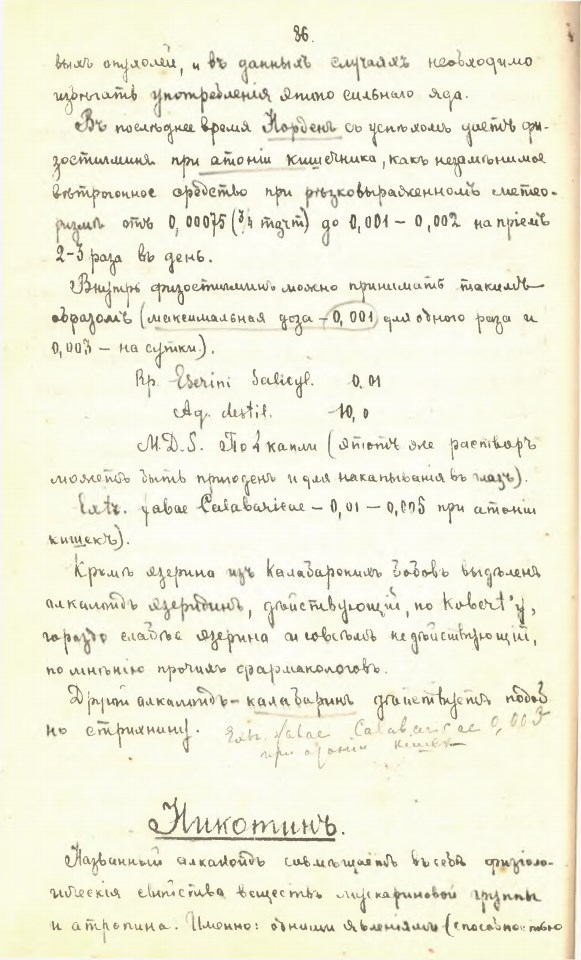 86.
выхъ опухолей, и въ данныхъ случаяхъ необходимо
избѣгать употребленія этого сильнаго яда.
Въ послѣднее время Норденъ съ успѣхомъ даетъ фи-
зостигминъ при атоніи кишечника, какъ незамѣнимое
вѣтрогонное средство при рѣзковыраженномъ метео-
ризмѣ отъ 0,00075 (3/4 mgr) до 0,001 – 0,002 на пріемъ
2-3 раза въ день.
Внутрь физостигминъ можно принимать такимъ
образомъ (максимальная доза – 0,001 для одного раза и
0,003 – на сутки).
Rp. Eserini Salicyl. 0.01
Aq. destil. –10,0
M.D.S. По капли (этотъ же растворъ
можетъ быть пригоденъ и для накапыванія въ глазъ).
Extr. fabae Calabaricae – 0,01 – 0,005 при атоніи
кишекъ).
Кромѣ эзерина изъ Калабарскихъ бобовъ выдѣленъ
алкалоидъ эзеридинъ, дѣйствующій, по Kobert'у,
гораздо слабѣе эзерина и совсѣмъ недѣйствующій,
по мнѣнію прочихъ фармакологовъ.
Другой алкалоидъ – калабаринъ дѣйствуетъ подоб
но стрихнину. Extr. fabae Calabaricae 0,005
при атоніи кишекъ
Никотинъ.
Названный алкалоидъ совмѣщаетъ въ себѣ физіоло-
гическія свойства веществъ мускариновой группы
и атропина. Именно: одними явленіями (способностью